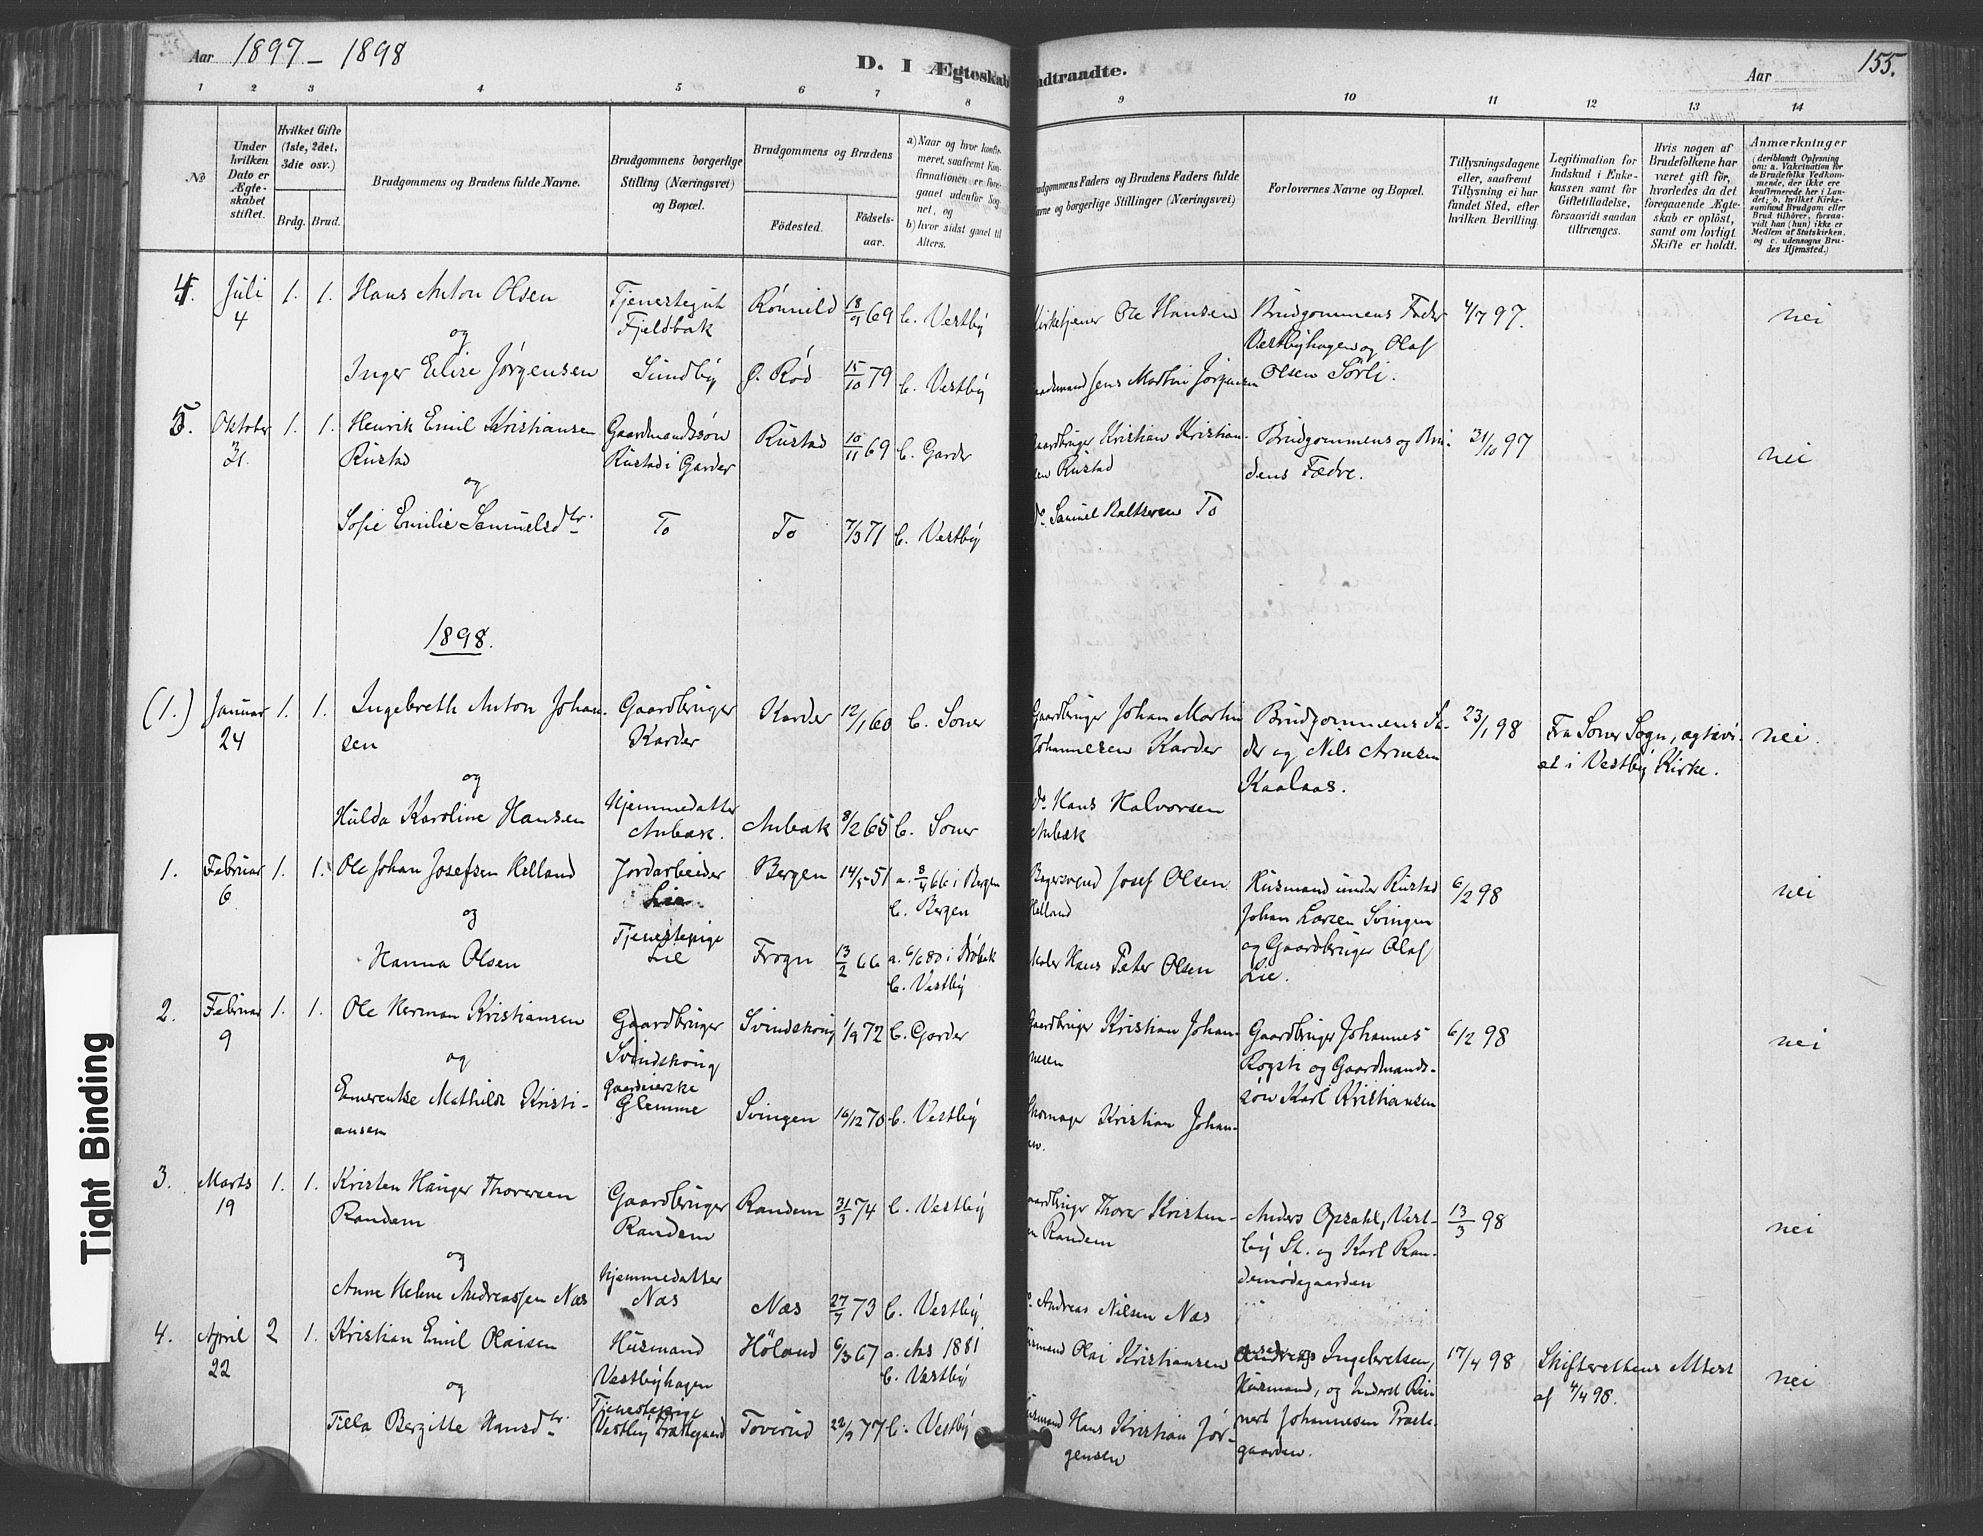 Aar 1897 – 1898
D. I Ægteskab indtraadte.
Aar
155.
1 2 3 4 5 6 7 8 9 10 11 12 13 14
No
Under hvilken Dato er Ægteskabet stiftet.
Hvilket Gifte (1ste, 2det, 3die osv.)
Brdg. Brud.
Brudgommens og Brudens fulde Navne.
Brudgommens borgerlige Stilling (Næringsvei) og Bopæl.
Brudgommens og Brudens
Födested. Födselsaar.
a) Naar og hvor konfirmeret, saafremt Konfirmationen er foregaaet udenfor Sognet, og
b) hvor sidst gaaet til Alters.
Brudgommens Faders og Brudens Faders fulde Navne og borgerlige Stillinger (Næringsvei)
Forlovernes Navne og Bopæl.
Tillysningsdagene eller, saafremt Tillysning ei har fundet Sted, efter hvilken Bevilling.
Legitimation for Indskud i Enkekassen samt for Giftetilladelse, forsaavidt saadan tiltrænges.
Hvis nogen af Brudefolkene har været gift för, hvorledes da det foregaaende Ægteskab er oplöst, samt om lovligt Skifte er holdt.
Anmærkninger
(deriblandt Oplysning om: a. Vakcination for de Brudefolks Vedkommende, der ikke ere konfirmerede her i Landet; b. hvilket Kirkesamfund Brudgom eller Brud tilhörer, forsaavidt han (hun) ikke er Medlem af Statskirken, og c. udensogns Brudes Hjemsted.)
4. Juli 4 1. 1. Hans Anton Olsen Tjenestegut Fjeldbak Römmild 18/9 69 b. Vestby Kirketjener Ole Hansen Brudgommens Fader Vestbyhagen og Olaf Olsen Sörli. 4/7 97. nei
og
Inger Elise Jörgensen Sundby Ö. Röd 15/10 79 b. Vestby Gaardmand Jens Martin Jörgensen
5. Oktober 31. 1. 1. Henrik Emil Kristiansen Rustad Gaardmandssön Rustad i Garder Rustad 10/11 69 b. Garder Gaardbruger Kristian Kristiansen Rustad Brudgommens og Brudens Fædre. 31/10 97 nei
og
Sofie Emilie Samuelsdtr. To To 7/3 71 b. Vestby Do. Samuel Baltsersen To
1898.
(1.) Januar 24 1. 1. Ingebreth Anton Johansen Gaardbruger Karder Karder 12/1 60 b. Soner Gaardbruger Johan Martin Johannesen Karder Brudgommens Fader og Nils Arnesen Kaalaas. 23/1 98 Fra Soner Sogn, ægtevi- et i Vestby Kirke. nei.
og
Hulda Karoline Hansen Hjemmedatter Aubæk. Aubæk 8/2 65 b. Soner Do. Hans Halvorsen Aubæk
1. Februar 6 1. 1. Ole Johan Josefsen Helland Jordarbeider Lie Bergen 14/5 51 a. 8/4 66 i Bergen b. Bergen Josef Olsen Helland Husmand under Rustad Johan Larsen Svingen og Gaardbruger Olaf Lie. 6/2 98 nei
og
Hanna Olsen Tjenestepige Lie Frogn 13/2 66 a. 6/6 80 i Dröbak b. Vestby Maler Hans Peter Olsen
2. Februar 9 1. 1. Ole Herman Kristiansen Gaardbruger Svindskoug Svindskoug 1/9 72 b. Garder Gaardbruger Kristian Johannesen Gaardbruger Johannes Rogsti og Gaardmandssön Karl Kristiansen 6/2 98 nei
og
Emerentse Mathilde Kristiansen Gaardeierske Glemme Svingen 16/12 70 b. Vestby Skomager Kristian Johansen.
3. Marts 19 1. 1. Kristen Hauger Thoresen Randem Gaardbruger Randem Randem 31/3 74 b. Vestby Gaardbruger Thorer Kristensen Randem Anders Opsahl, Vestby St. og Karl Randemödegaarden 13/3 98 nei
og
Anne Helene Andreassen Næs Hjemmedatter Næs Næs 27/7 73 b. Vestby. Do. Andreas Nilsen Næs
4. April 22 2 1. Kristian Emil Olaisen Husmand Vestbyhagen Höland 6/3 67 a. Aas 1881 b. Vestby Husmand Olai Kristiansen Andreas Ingebretsen, Husmand, og Inderst Reinert Johannesen Præstegaarden. 17/4 98 Skifterettens Attest af 4/4 98. nei
og
Tilla Bergitte Hansdtr. Tjenestepige Vestby Præstegaard Toverud 22/9 77 b. Vestby Husmand Hans Kristian Jörgensen
Tight Binding